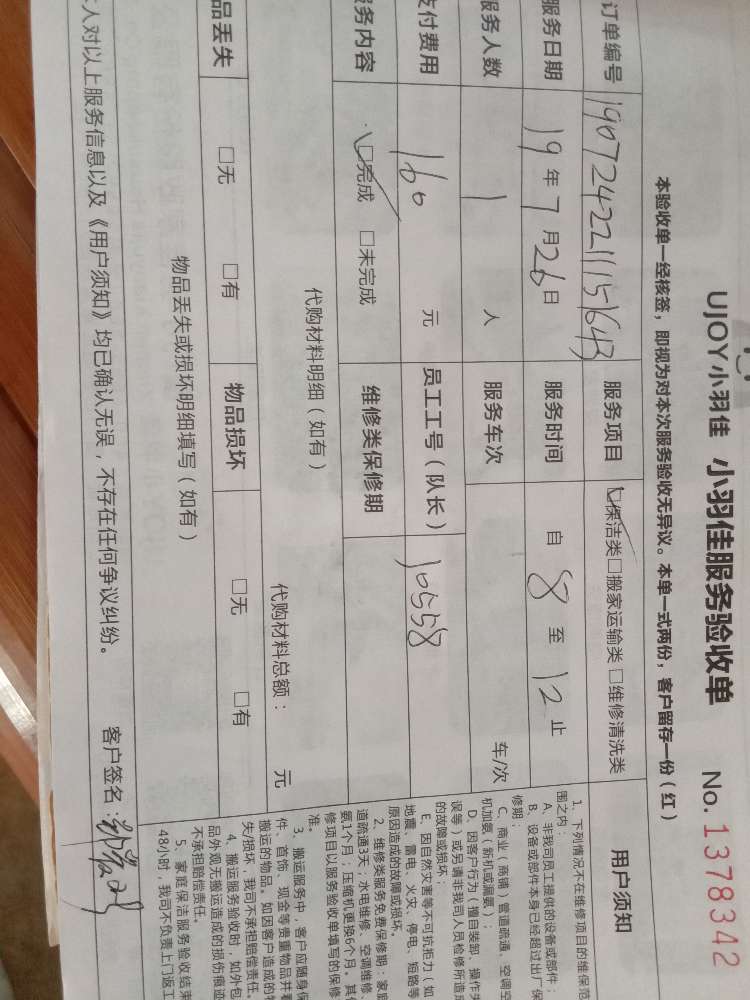 UJOY小羽佳 小羽佳服务验收单 No.1378342
本验收单一经核签，即视为对本次服务验收无异议。本单一式两份，客户留存一份（红）
订单编号 190724221151643 服务项目 ☑保洁类□搬家运输类□维修清洗类
服务日期 19年7月26日 服务时间 自 8 至 12 止
服务人数 1 人 服务车次 车/次
支付费用 160 元 员工工号（队长） 10558
务内容 ☑完成 □未完成 维修类保修期
代购材料明细（如有）
代购材料总额： 元
品丢失 □无 □有 物品损坏 □无 □有
物品丢失或损坏明细填写（如有）
人对以上服务信息以及《用户须知》均已确认无误，不存在任何争议纠纷。
客户签名：
用户须知
1、下列情况不在维修项目的维保范
围之内：
A、非我司员工提供的设备或部件；
B、设备或部件本身已经超过出厂保
修期；
C、商业（商铺）管道疏通、空调空
机加氨（新机或漏氨）；
D、因客户行为（擅自装卸、操作失
误等）或另请非我司人员检修所造成
的故障或损坏；
E、因自然灾害等不可抗拒力（如
地震、雷电、火灾、停电、短路等
原因造成的故障或损坏。
2、维修类服务免费保修期：家庭
道疏通3天；水电维修、空调维修
氨1个月；压缩机更换6个月。其他
修项目以服务验收单填写的保修
准。
3、搬运服务中，客户应随身保
件、首饰、现金等贵重物品并看
搬运的物品。如因客户造成的物
失/损坏，我司不承担赔偿责任。
4、搬运服务验收时，如外包
品外观无搬运造成的损伤痕迹
不承担赔偿责任。
5、家庭保洁服务验收结束
48小时，我司不负责上门返工